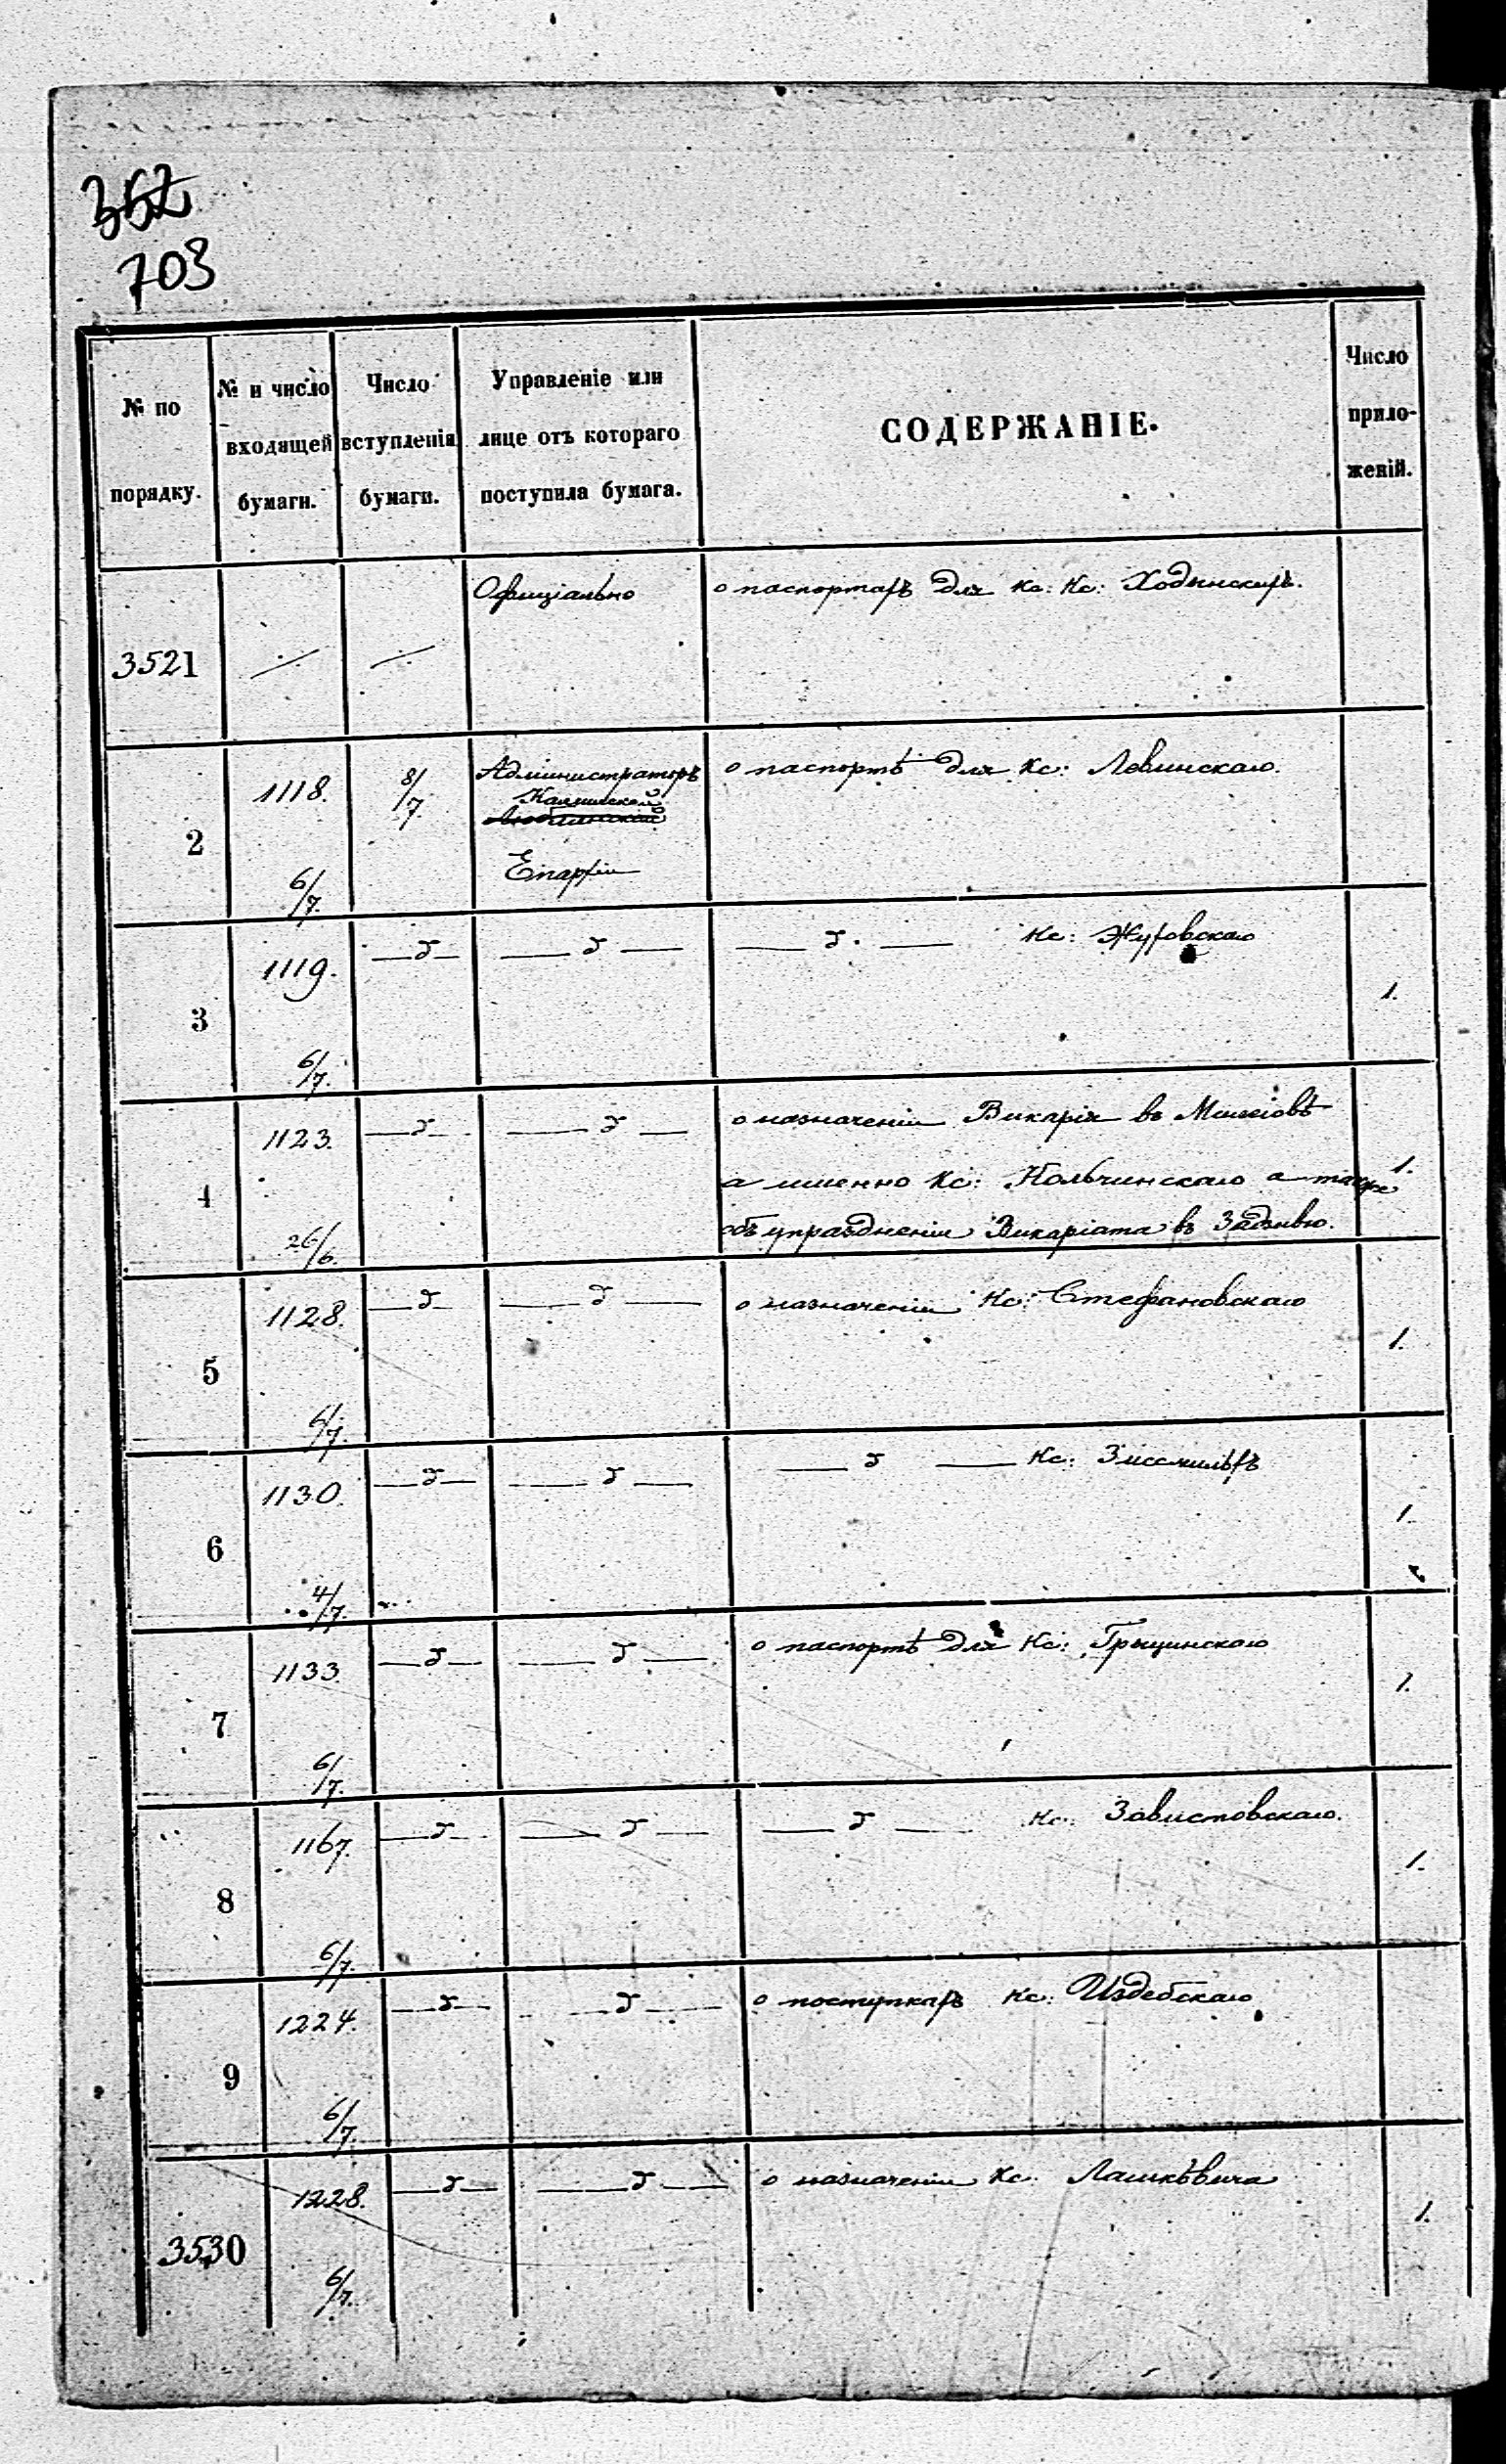 352
703
№ по порядку.
№ и число входящей бумаги.
Число вступленія бумаги.
Управленіе или лице отъ котораго поступила бумага.
СОДЕРЖАНІЕ.
Число приложеній.
3521 Офиціально о паспортахъ для Кс: Кс: Ходынскихъ.
2 1118. 6/7. 8/7. Администраторъ
Калишской
Епархіи
о паспортѣ для Кс: Левинскаго.
3 1119. 6/7. —д— —д— —д.— Кс: Журовскаго 1.
4 1123. 26/6. —д— —д— о назначеніи Викарія въ
а именно Кс: Кольчинскаго а также 1.
объ упраздненіи Викаріата въ
5 1128. 6/7. —д— —д— о назначеніи Кс: Стефановскаго 1.
6 1130. 4/7. —д— —д— —д— Кс: 1.
7 1133. 6/7. —д— —д— о паспортѣ для Кс: Грыцинскаго 1.
8 1167. 6/7. —д— —д— —д— Кс: Завистовскаго. 1.
9 1224. 6/7. —д— —д— о поступкахъ Кс: Издебскаго
3530 1228. 6/7. —д— —д— о назначеніи Кс: Лашкѣвича 1.